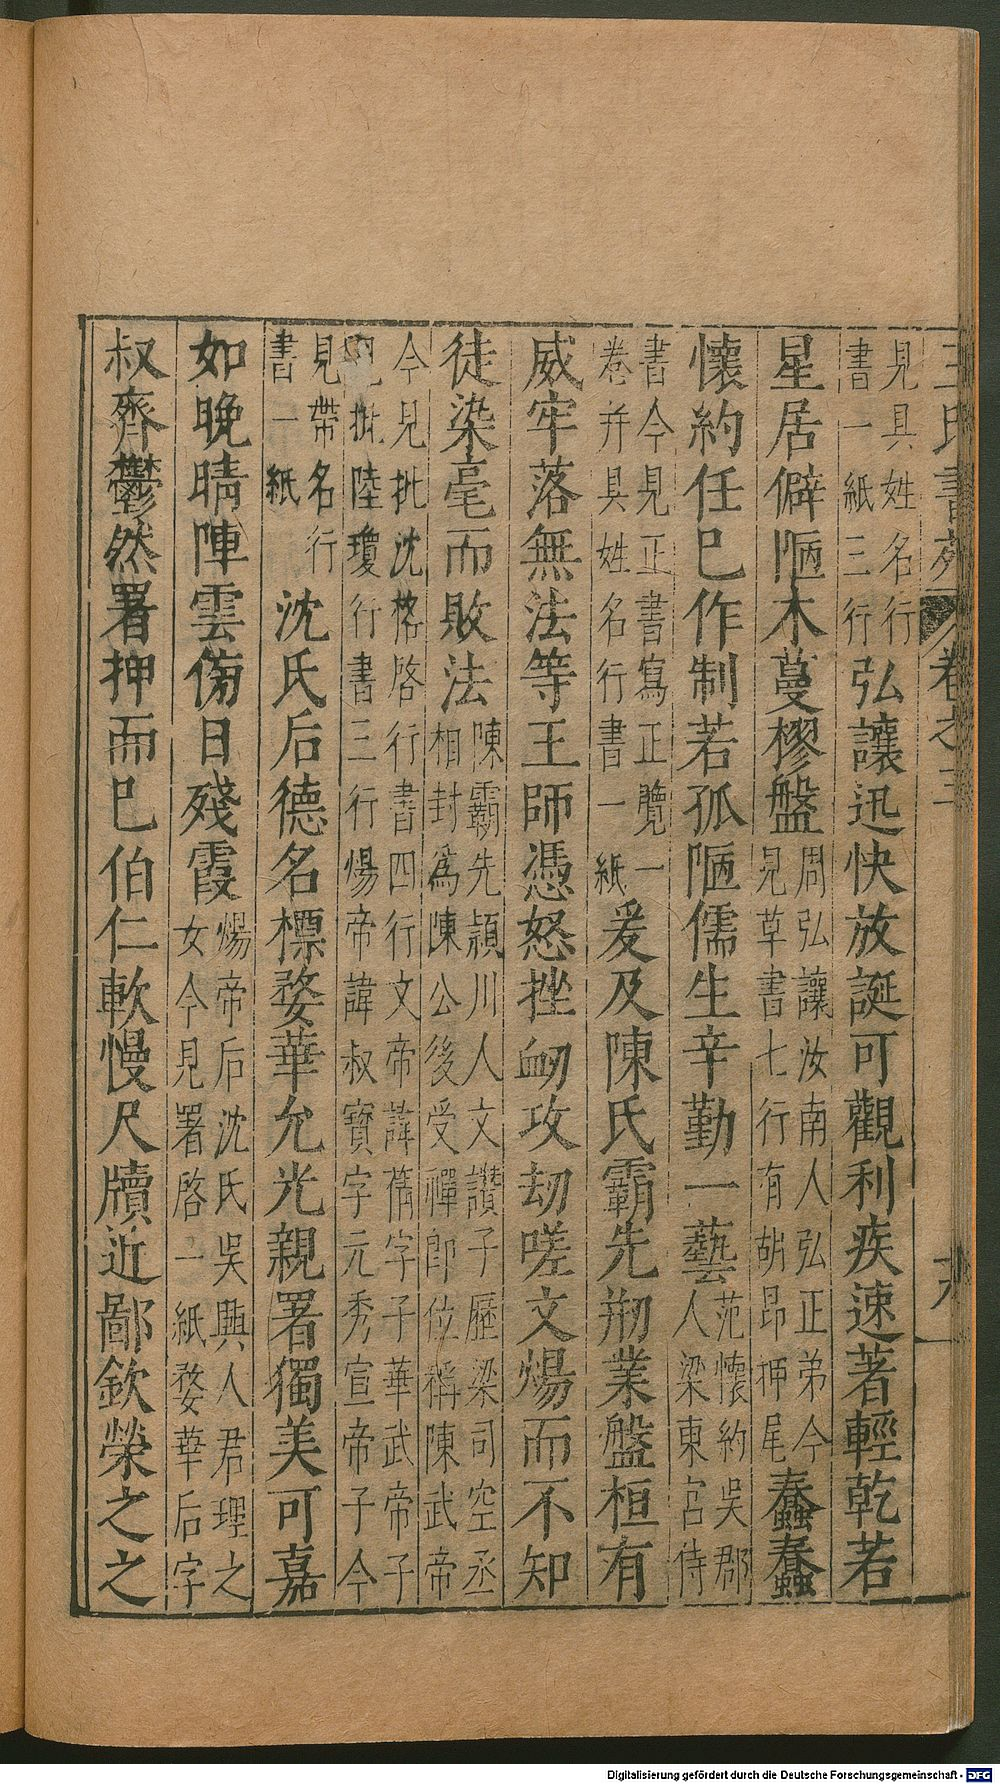 王氏書苑 卷之三
見具姓名行書一紙三行 弘讓迅快放誕可觀利疾速著輕乾若
星居僻陋木蔓樛盤 周弘讓汝南人弘正弟今見草書七行有胡昂押尾 蠢蠢
懷約任已作制若孤陋儒生辛勤一藝 范懷約吳郡人梁東宮侍
書今見正書寫正覽一卷并具姓名行書一紙 爰及陳氏霸先剏業盤桓有
威牢落無法等王師憑怒挫衂攻刧嗟文煬而不知
徒染毫而敗法 陳霸先潁川人文讚子歷梁司空丞相封為陳公後受禪卽位稱陳武帝
今見批沈恪啓行書四行文帝諱蒨字子華武帝子批陸瓊行書三行煬帝諱叔寶字元秀宣帝子今
見帶名行書一紙 沈氏后德名標婺華允光親署獨美可嘉
如晚晴陣雲傍日殘霞 煬帝后沈氏吳興人君理之女今見署啓一紙婺華后字
叔齊鬱然署押而已伯仁軟慢尺牘近鄙欽榮之之
Digitalisierung gefördert durch die Deutsche Forschungsgemeinschaft - DFG